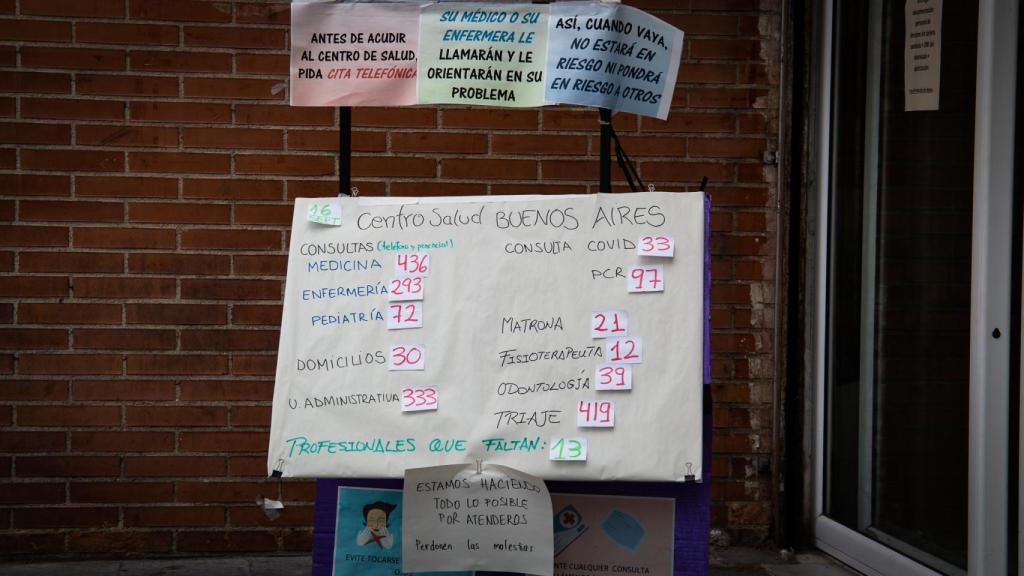 ANTES DE ACUDIR
AL CENTRO DE SALUD,
PIDA CITA TELEFÓNICA
SU MÉDICO O SU
ENFERMERA LE
LLAMARÁN Y LE
ORIENTARÁN EN SU
PROBLEMA
ASÍ, CUANDO VAYA,
NO ESTARÁ EN
RIESGO NI PONDRÁ
EN RIESGO A OTROS
16
SEPT
Centro Salud BUENOS AIRES
CONSULTAS (teléfono y presencial)
MEDICINA 436
ENFERMERÍA 293
PEDIATRÍA 72
DOMICILIOS 30
U. ADMINISTRATIVA 333
CONSULTA COVID 33
PCR 97
MATRONA 21
FISIOTERAPEUTA 12
ODONTOLOGÍA 39
TRIAJE 419
PROFESIONALES QUE FALTAN: 13
ESTAMOS HACIENDO
TODO LO POSIBLE
POR ATENDEROS
Perdonen las molestias
EVITE TOCARSE
CUALQUIER CONSULTA